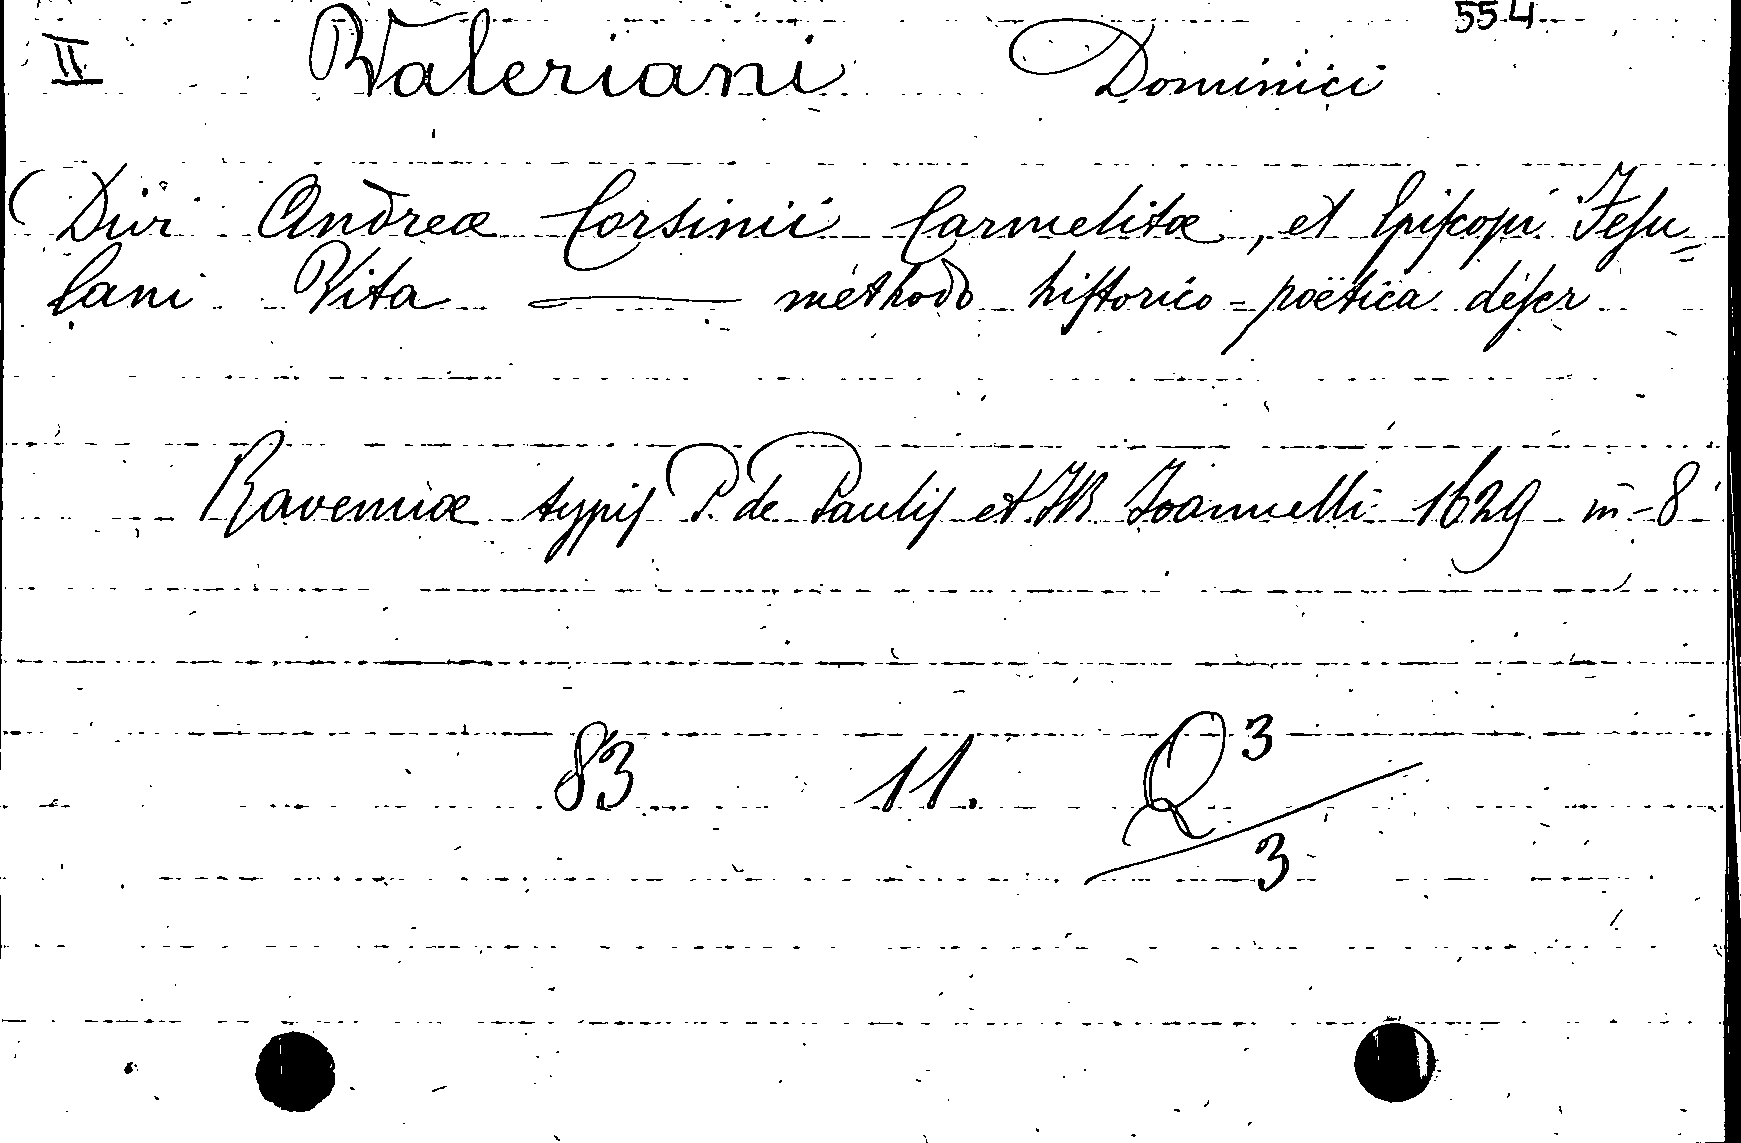 554
II Valeriani Dominici
(Divi Andreæ Corsinii Carmelitæ, et Epiſcopi Feſu=
lani Vita —— methodo hiſtorico-poëtica deſcr
Ravennæ typiſ P. de Pauliſ et JB Joannelli 1629 in-8
83 11. Q 3
3